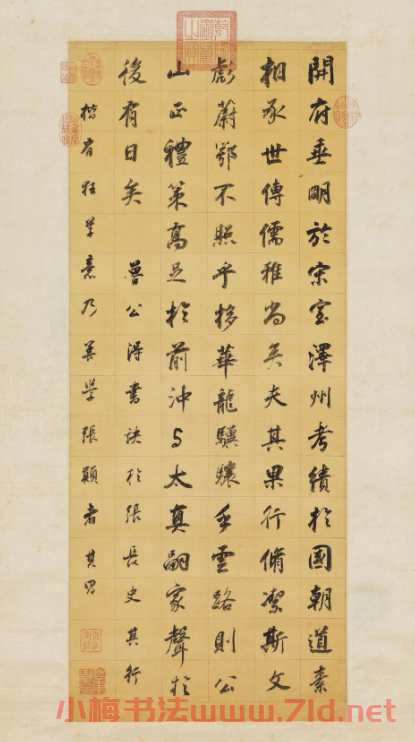 開府垂明於宋室澤州考績於國朝道素
相承世傳儒雅尚矣夫其果行脩潔斯文
彪蔚鄂不照乎栘華龍驥驤乎雲路則公
山正禮策高足於前沖与太真嗣家聲於
後有日矣 魯公得書訣於張長史其行
楷有狂草意乃善學張顛者 其昌
小梅书法www.7ld.net